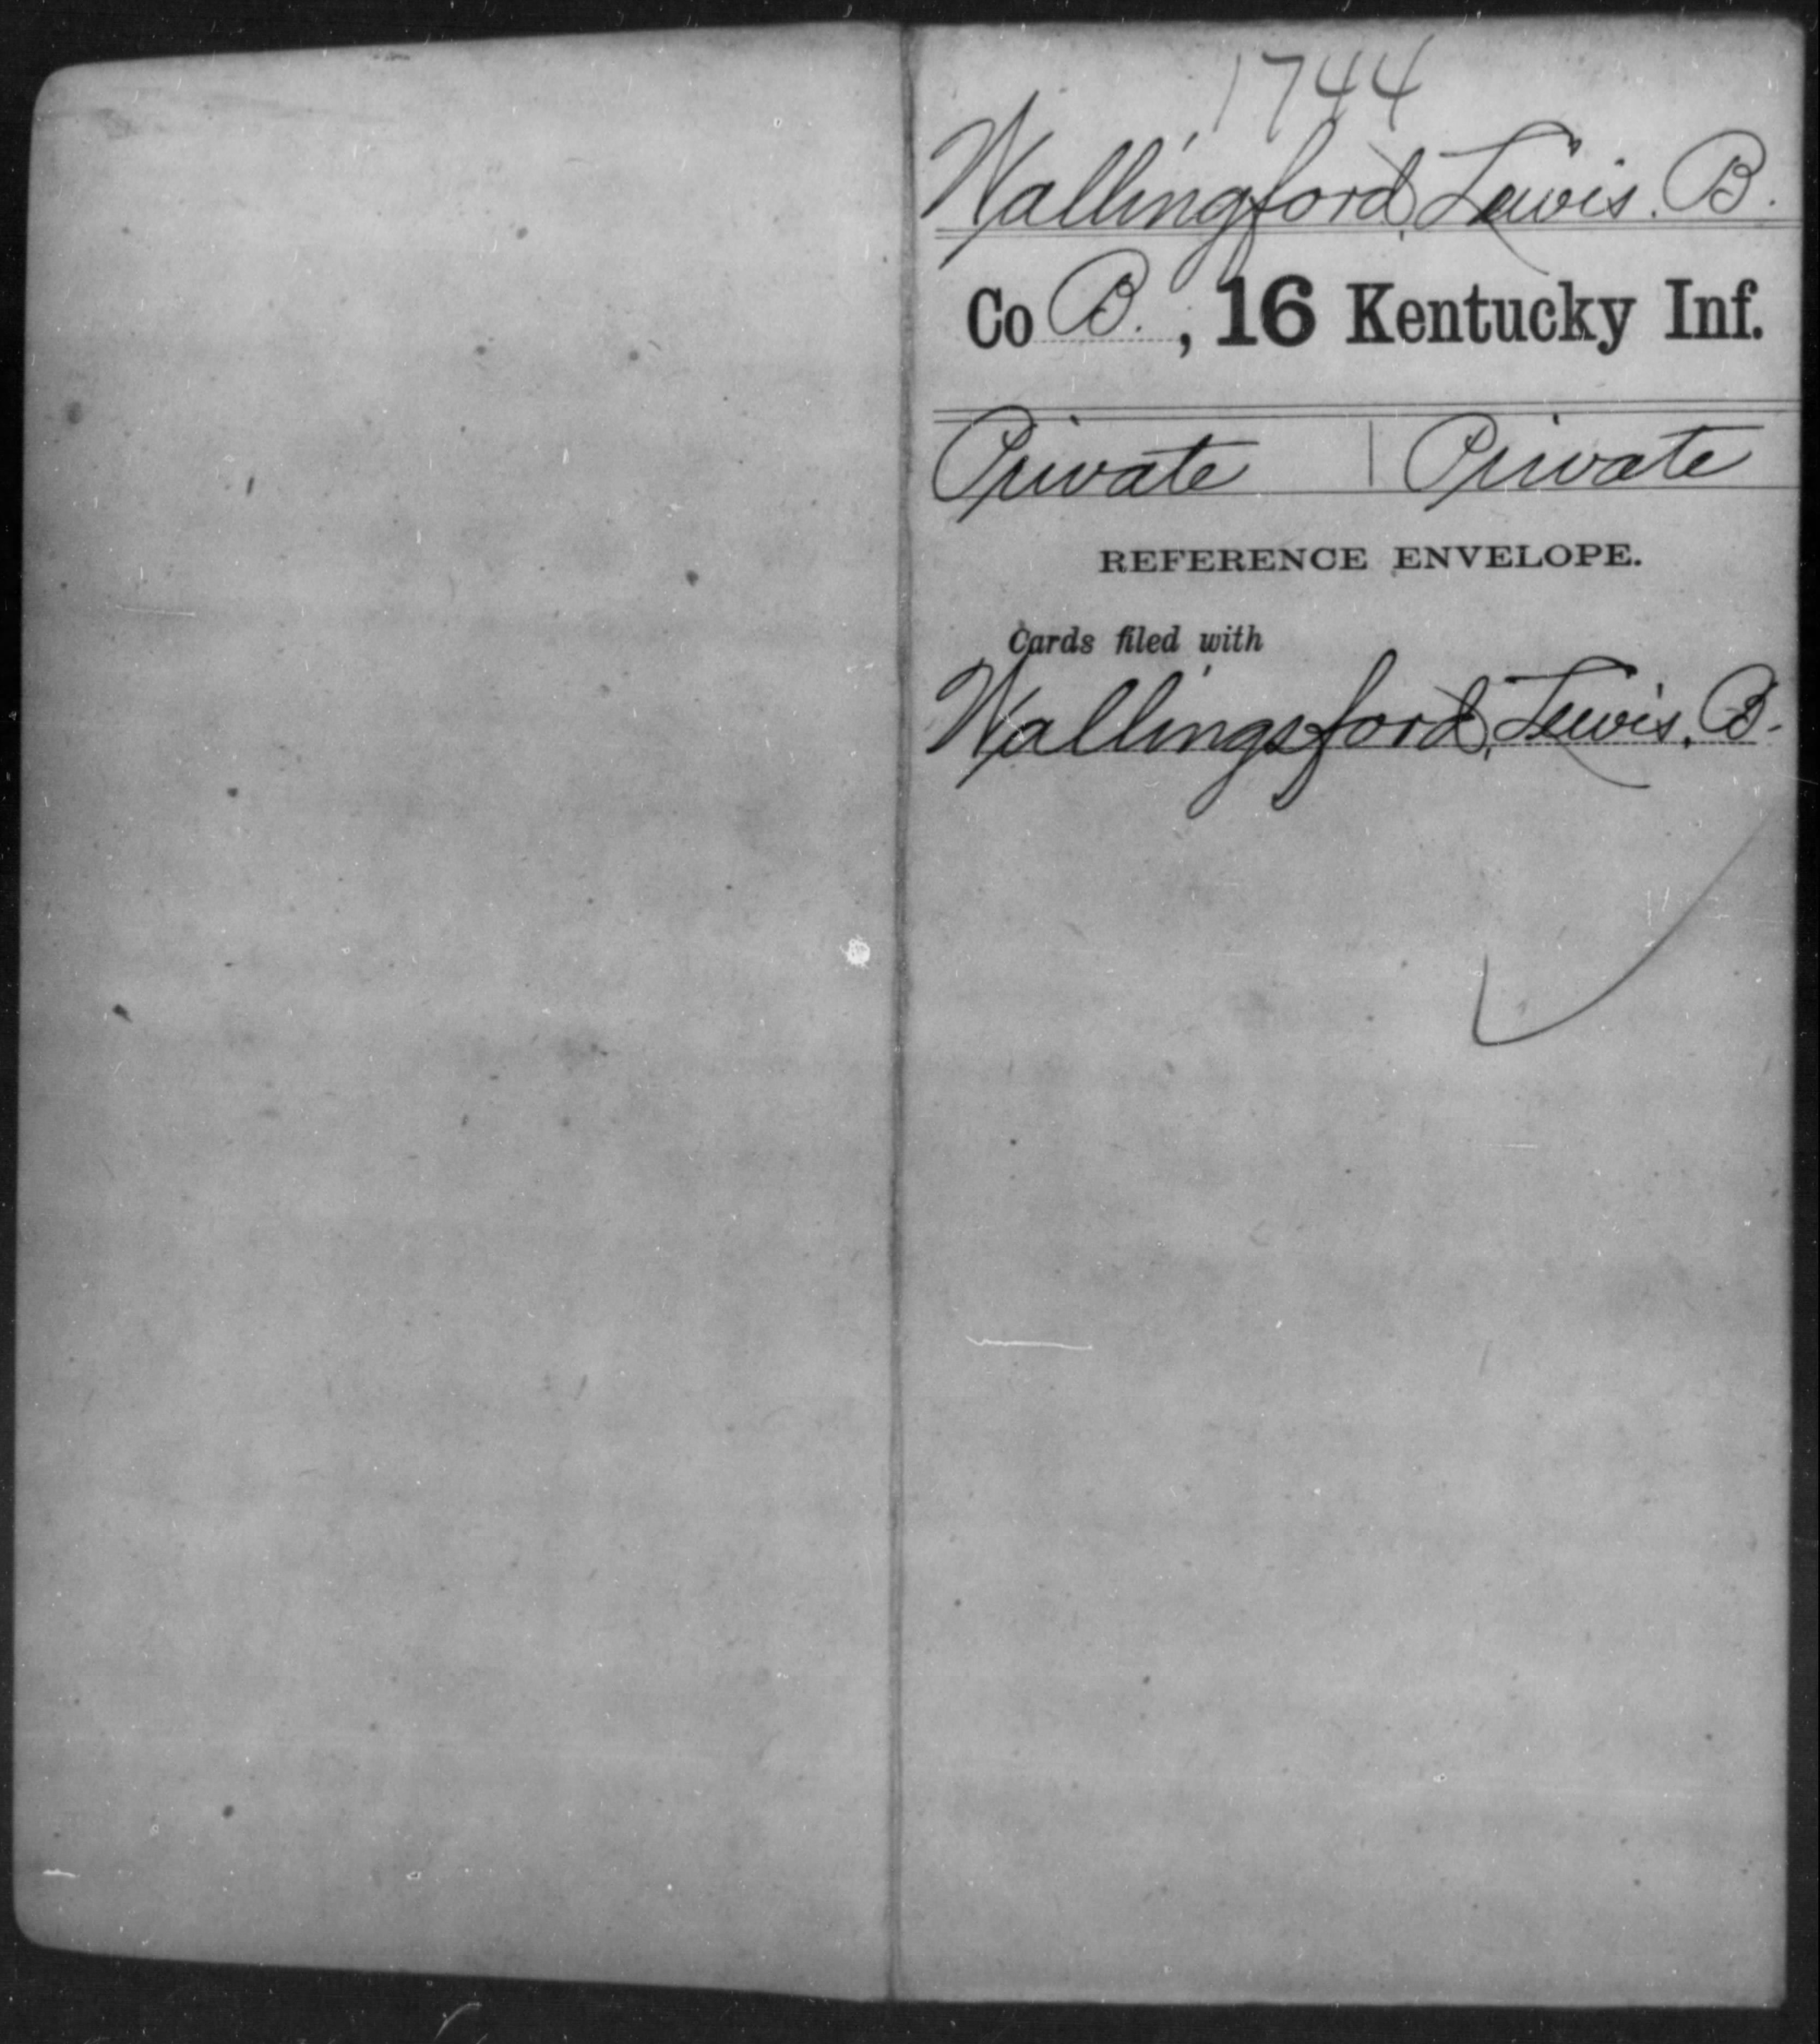 1744
Wallingford, Lewis. B.
Co B., 16 Kentucky Inf.
Private | Private
REFERENCE ENVELOPE.
Cards filed with
Wallingsford, Lewis. B.